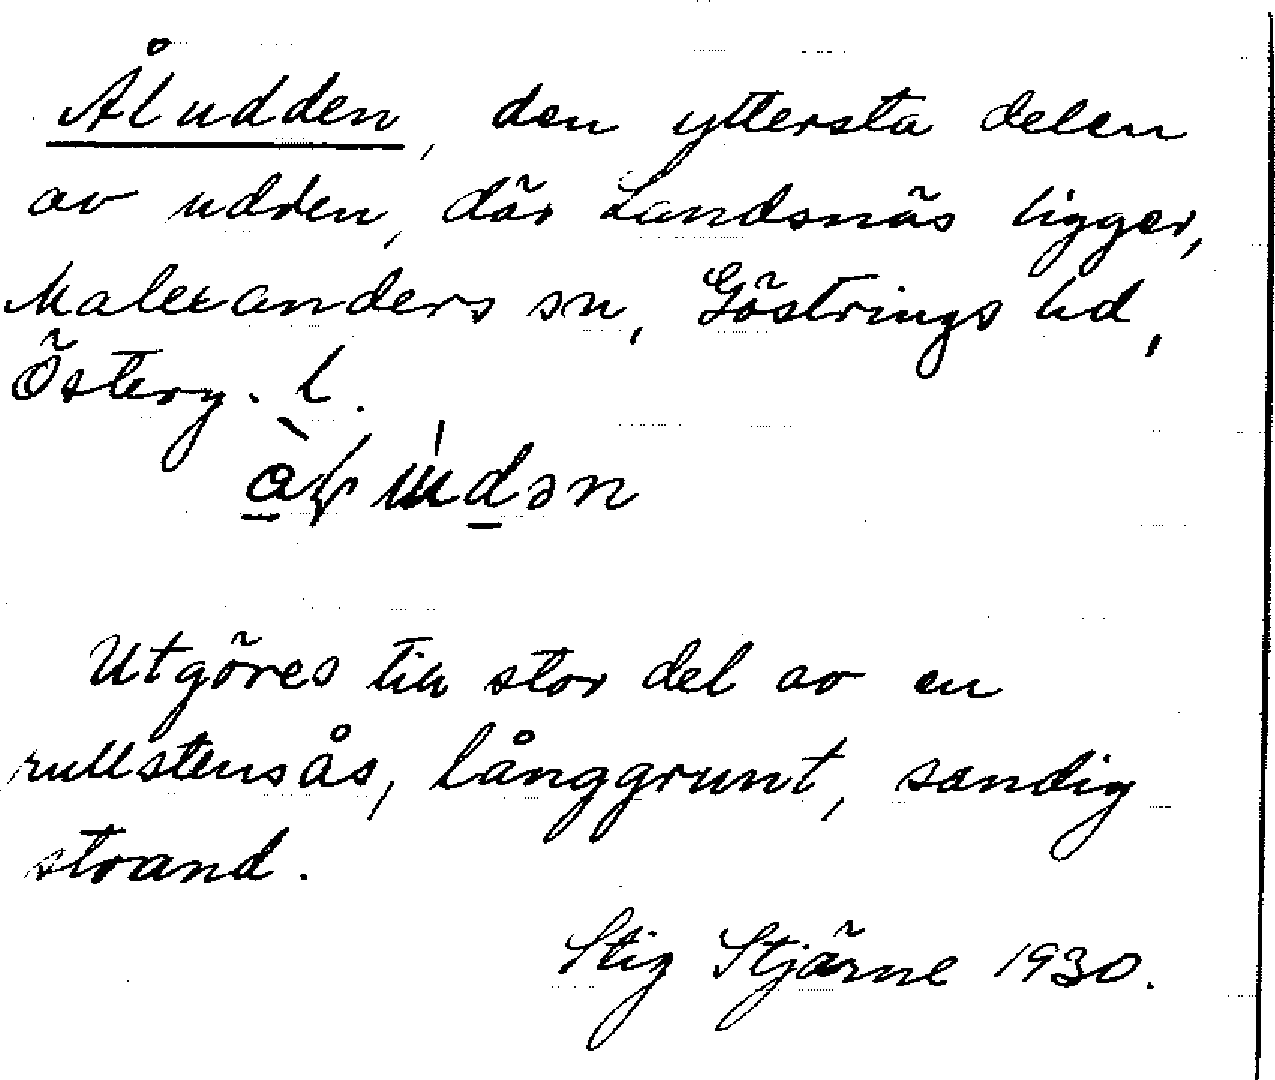 Åludden, den yttersta delen
av udden, där Landsnäs ligger,
Malexanders sn, Göstrings hd,
Österg. l.
Utgöres till stor del av en
rullstensås, långgrunt, sandig
strand.
Stig Stjärne 1930.